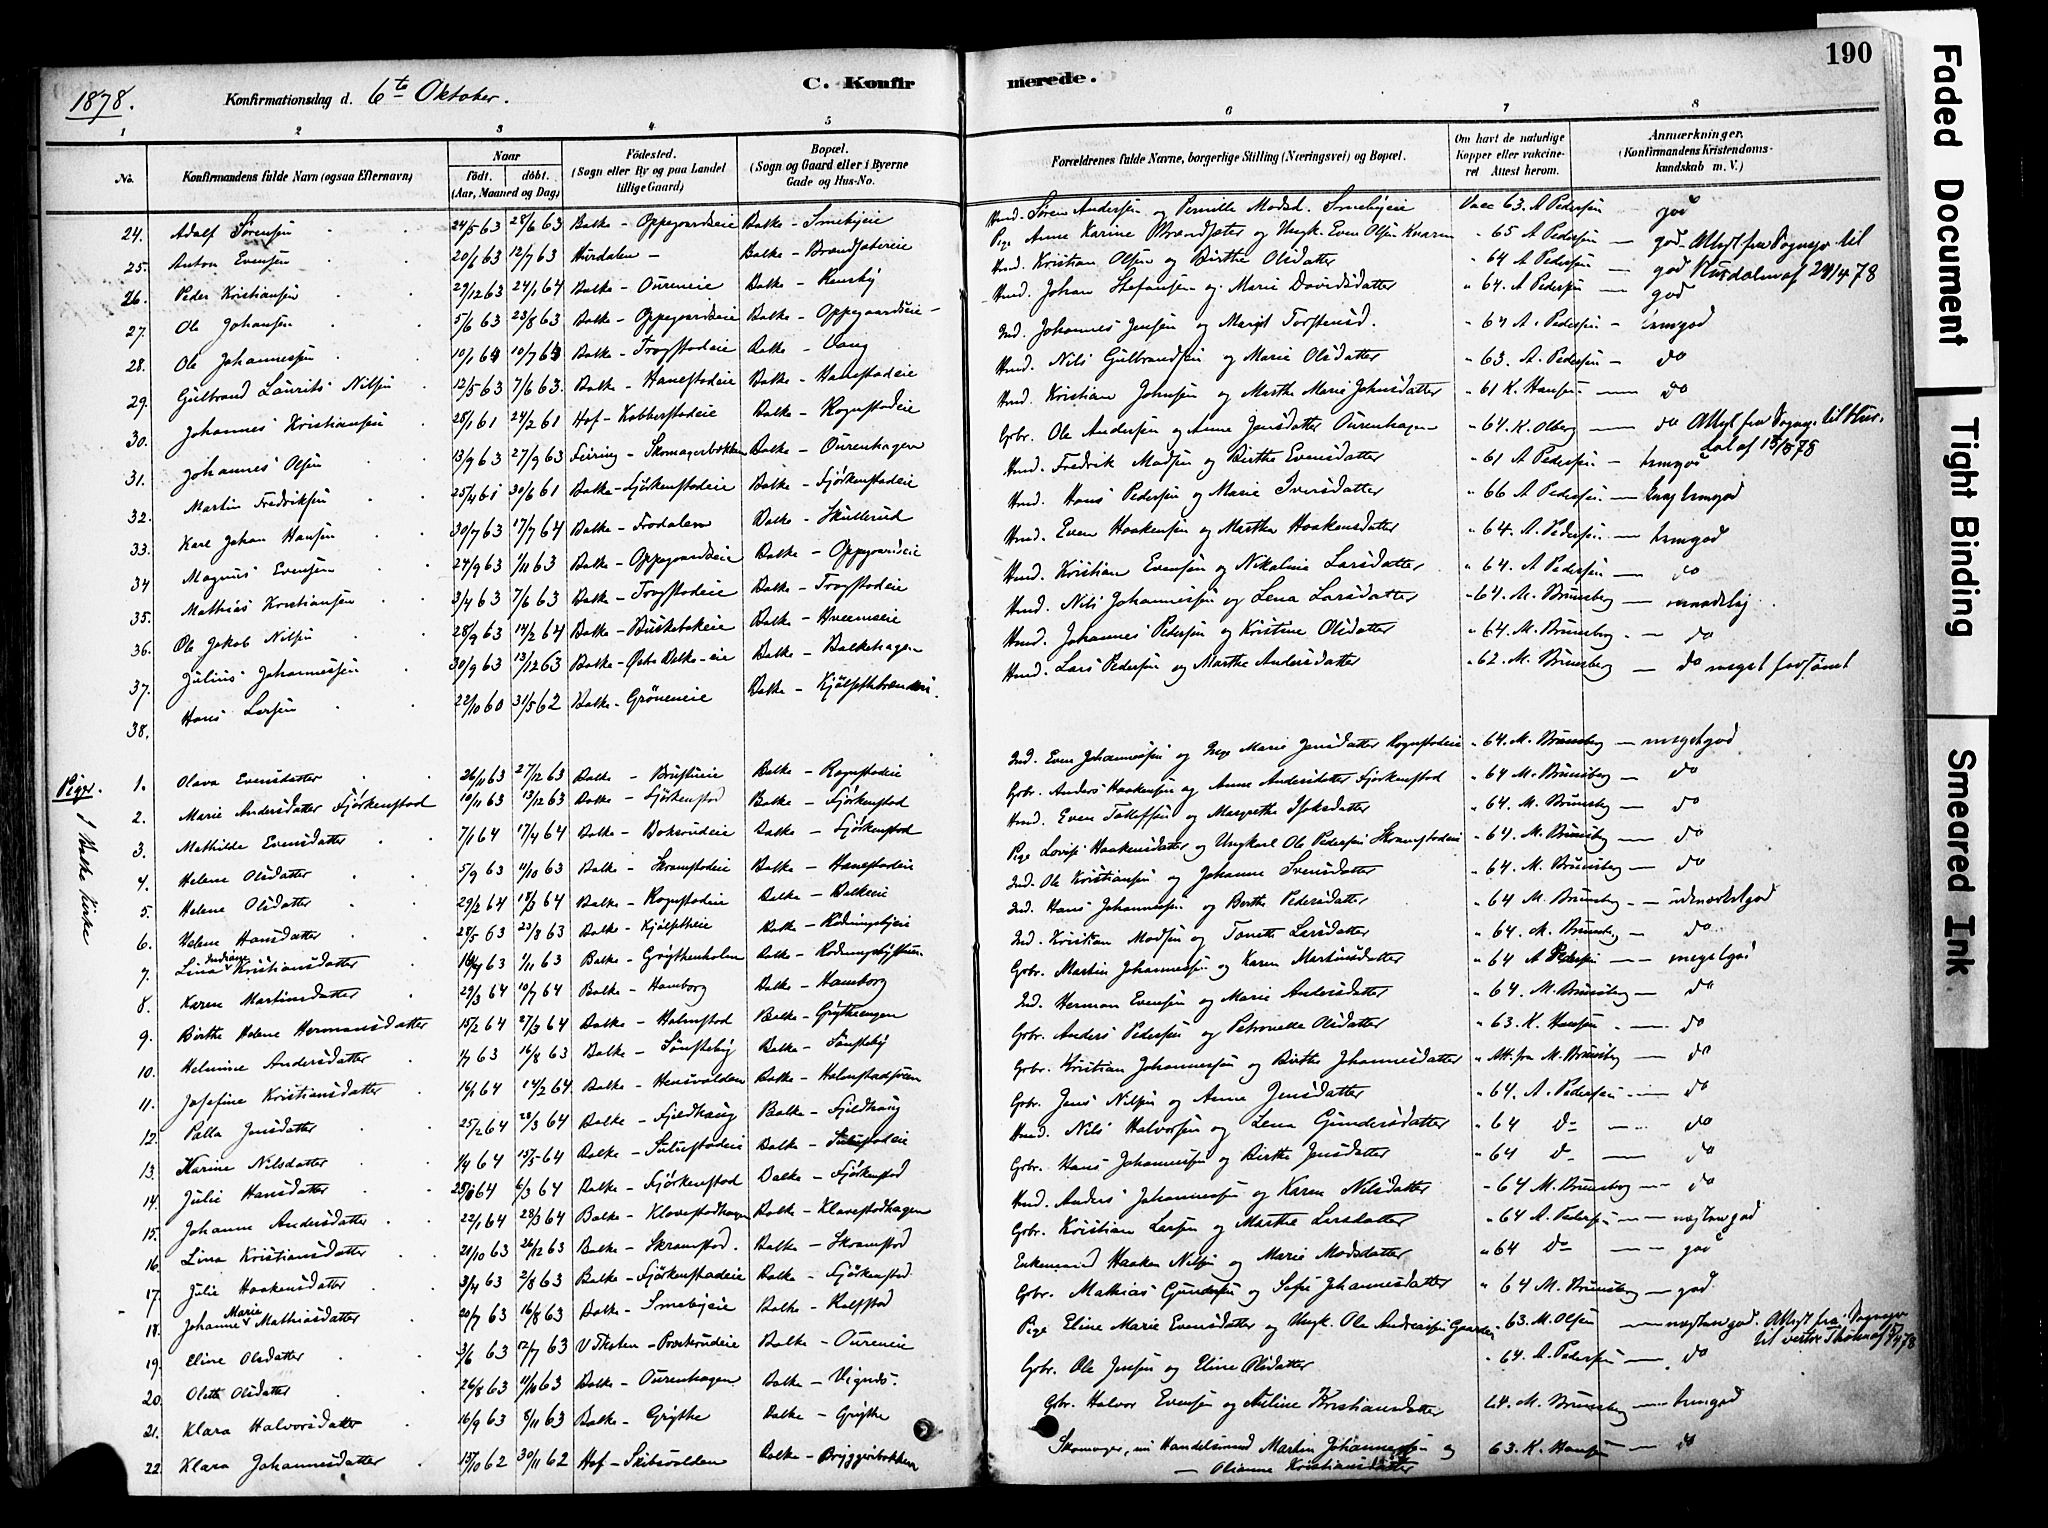 190
1878. Konfirmationsdag d. 6te Oktober. C. Konfir merede.
1 2 3 4 5 6 7 8
No. Konfirmandens fulde Navn (ogsaa Efternavn) Naar født. døbt. (Aar, Maaned og Dag) Fødested. (Sogn eller By og paa Landet tillige Gaard) Bopæl. (Sogn og Gaard eller i Byerne Gade og Hus-No.
Forældrenes fulde Navne, borgerlige Stilling (Næringsvei) og Bopæl. Om havt de naturlige Kopper eller vakcineret Attest herom. Anmærkninger. (Konfirmandens Kristendomskundskab m. V.)
24. Adolf Sørensen 24/5 63 28/6 63 Balke - Oppegaardseie Balke - Smebyeie Hmd. Søren Andersen og Pernille Madsd. Smebyeie Vacc 63. A Pedersen - god
25. Anton Evensen 20/6 63 12/7 63 Hurdalen - Balke - Brandsætereie Pige Anne Karine Brandsæter og Ungk. Even Olsen " 65 A Pedersen - god. Attest fra Sognepr. til
26. Peder Kristiansen 29/12 63 24/1 64 Balke - Oureneie Balke - Hmd. Kristian Olsen og Birthe Olsdatter " 64 A Pedersen - god Hurdalen af 78
27. Ole Johansen 5/6 63 23/8 63 Balke - Oppegaardseie Balke - Oppegaardseie - Hmd. Johan Stefansen og Marie Davidsdatter " 64. A Pedersen - god
28. Ole Johannessen 10/1 64 10/7 64 Balke - Trogstadeie Balke - Vang Ind. Johannes Jensen og Margit Torstensd. " 64 A. Pedersen - temgod
29. Gulbrand Laurits Nilsen 12/5 63 7/6 63. Balke - Hanestadeie Balke - Hanestadeie Hmd. Nils Gulbrandsen og Marie Olsdatter " 63. A. Pedersen - do
30. Johannes Kristiansen 28/1 61 24/2 61 Hof - Kobberstadeie Balke - Rognstadeie Hmd. Kristian Johnsen og Marthe Marie Johnsdatter " 61 K. Hansen - do
31. Johannes Olsen 13/9 63 27/9 63 Feiring - Skomagerbakken Balke - Ourenhagen Gbr. Ole Andersen og Anne Jensdatter Ourenhagen " 64. K. Olberg - do Attest fra Sognepr. til Hur-
32. Martin Fredriksen 25/4 61 30/6 61 Balke - Fjørkenstadeie Balke - Fjørkenstadeie Hmd. Fredrik Madsen og Birthe Evensdatter " 61 A Pedersen - temgod dal af 18/5 78
33. Karl Johan Hansen 30/7 63 17/7 64 Balke - Frodalen Balke - Skullerud Hmd. Hans Pedersen og Marie Iversdatter " 66 A Pedersen - temgod
34 Magnus Evensen 24/9 63 1/11 63 Balke - Oppegaardseie Balke - Oppegaardseie Hmd. Even Haakensen og Martha Haakensdatter " 64. A. Pedersen - temgod
35. Mathias Kristiansen 3/4 63 7/6 63 Balke - Trogstadeie Balke - Trogstadeie Hmd. Kristian Evensen og Nikoline Larsdatter " 64. A Pedersen - do
36. Ole Jakob Nilsen 28/9 63 14/2 64 Balke - Buskebakeie Balke - Hveemseie Hmd. Nils Johannessen og Lena Larsdatter " 64. M. Brunsberg - maadelig
37. Julius Johannessen 30/9 63 13/12 63 Balke - Balke-eie Balke - Balkehagen Hmd. Johannes Pedersen og Kristine Olsdatter " 64. M. Brunsberg - do
38. Hans Larsen 22/10 60 31/5 62 Balke - Grøneneie Balke - Hmd. Lars Pedersen og Marthe Andersdatter " 62. M. Brunsberg - do meget forsømt
Piger. I Balke Kirke
1. Olava Evensdatter 26/11 63 27/12 63 Balke - Balke - Rognstadeie Ind. Even Johannessen og Inge Marie Jensdatter Rognstadeie " 64. M. Brunsberg - megetgod
2. Marie Andersdatter Fjørkenstad 10/11 63 13/12 63 Balke - Fjørkenstad Balke - Fjørkenstad Gbr. Anders Haakensen og Anne Andersdatter Fjørkenstad " 64 M. Brunsberg - do
3. Mathilde Evensdatter 7/1 64 17/4 64 Balke - Boksrudeie Balke - Fjørkenstad Hmd. Even Tollefsen og Margrethe Isaksdatter " 64. M. Brunsberg - do
4. Helene Olsdatter 5/9 63 11/10 63 Balke - Skramstadeie Balke - Hanestadeie Pige Lovise Haakensdatter og Ungkarl Ole Pedersen Skramstadeie " 64. M. Brunsberg - do
5. Helene Olsdatter 29/2 64 64 Balke - Rognstadeie Balke - Balkeeie Ind. Ole Kristiansen og Johanne Svensdatter " 64. M. Brunsberg - do
6. Helene Hansdatter 28/5 63 23/8 63 Balke - Kjølsetheie Balke - Rødningsbyeie Ind. Hans Johannessen og Berthe Pedersdatter " 64 M. Brunsberg - udmærketgod
7. Lina Indiane Kristiansdatter 63 1/11 63 Balke - Grythenholm Balke - Ind. Kristian Madsen og Tonette Larsdatter " 64. M. Brunsberg - do
8. Karen Martinsdatter 29/3 64 10/7 64 Balke - Hamborg Balke - Hamborg Gbr. Martin Johannessen og Karen Martinsdatter " 64 A Pedersen - megetgod
9. Birthe Helene Hermansdatter 15/2 64 27/3 64 Balke - Holmstad Balke - Grythengen Ind. Herman Evensen og Marie Andersdatter " 64. M. Brunsberg - do
10. Helmine Andersdatter 1/7 63 16/8 63 Balke - Sønsteby Balke - Sønsteby Gbr. Anders Pedersen og Petronelle Olsdatter " 63. K. Hansen - do
11. Josefine Kristiansdatter 16/1 64 14/2 64 Balke - Hensvolden Balke - Holmstadsveen Gbr. Kristian Johannessen og Birthe Johannesdatter " Att. fra M. Brunsberg - do
12. Palla Jensdatter 25/2 64 28/3 64 Balke - Fjeldhaug Balke - Fjeldhaug Gbr. Jens Nilsen og Anne Jensdatter " 64. A. Pedersen - do
13. Karine Nilsdatter 1/4 64 15/5 64 Balke - Sulustadeie Balke - Sulustadeie Hmd. Nils Halvorsen og Lena Gundersdatter " 64 do - do
14. Julie Hansdatter 64 6/3 64 Balke - Fjørkenstad Balke - Fjørkenstad Gbr. Hans Johannessen og Birthe Jensdatter " 64 do - do
15. Johanne Andersdatter 22/1 64 28/3 64 Balke - Klavestadhagen Balke - Klavestadhagen Hmd. Anders Johannessen og Karen Nilsdatter " 64 M. Brunsberg - do
16. Lina Kristiansdatter 21/10 63 26/12 63 Balke - Skramstad. Balke - Skramstad Gbr. Kristian Larsen og Marthe Larsdatter " 64 A. Pedersen - næstmgod
17. Julie Haakensdatter 3/4 63 2/8 63 Balke - Fjørkenstadeie Balke - Fjørkenstad. Enkemand Haaken Nilsen og Marie Madsdatter " 64 do - god
18. Johanne Marie Mathiasdatter 20/7 63 16/8 63 Balke - Smebyeie Balke - Rolfstad Gbr. Mathias Gundersen og Sofie Johannesdatter " 64 M. Brunsberg - god
19. Eline Olsdatter 3/6 63 12/7 63 V Thoten - Præsterudeie Balke - Oureneie Pige Eline Marie Evensdatter og Ungk. Ole Andreassen " 63. M. Olsen - næstmgod. Attest fra Sognepr
20. Olette Olsdatter 26/8 63 11/10 63 Balke - Ourenhagen Balke - Vignds. Gbr. Ole Jensen og Eline Olsdatter " 64. A. Pedersen - do til vestre Thoten af 78
21. Klara Halvorsdatter 16/9 63 8/11 63 Balke - Grythe Balke - Grythe Gbr. Halvor Evensen og Auline Kristiansdatter 64. M. Brunsberg - temgod
22 Klara Johannesdatter 15/10 62 30/11 62 Hof - Skibsvolden Balke - Bryggeribakken Skomager, nu Handelsmand Martin Johannessen og 63. K. Hansen - do
- Olianne Kristiansdatter
Faded Document
Tight Binding
Smeared Ink